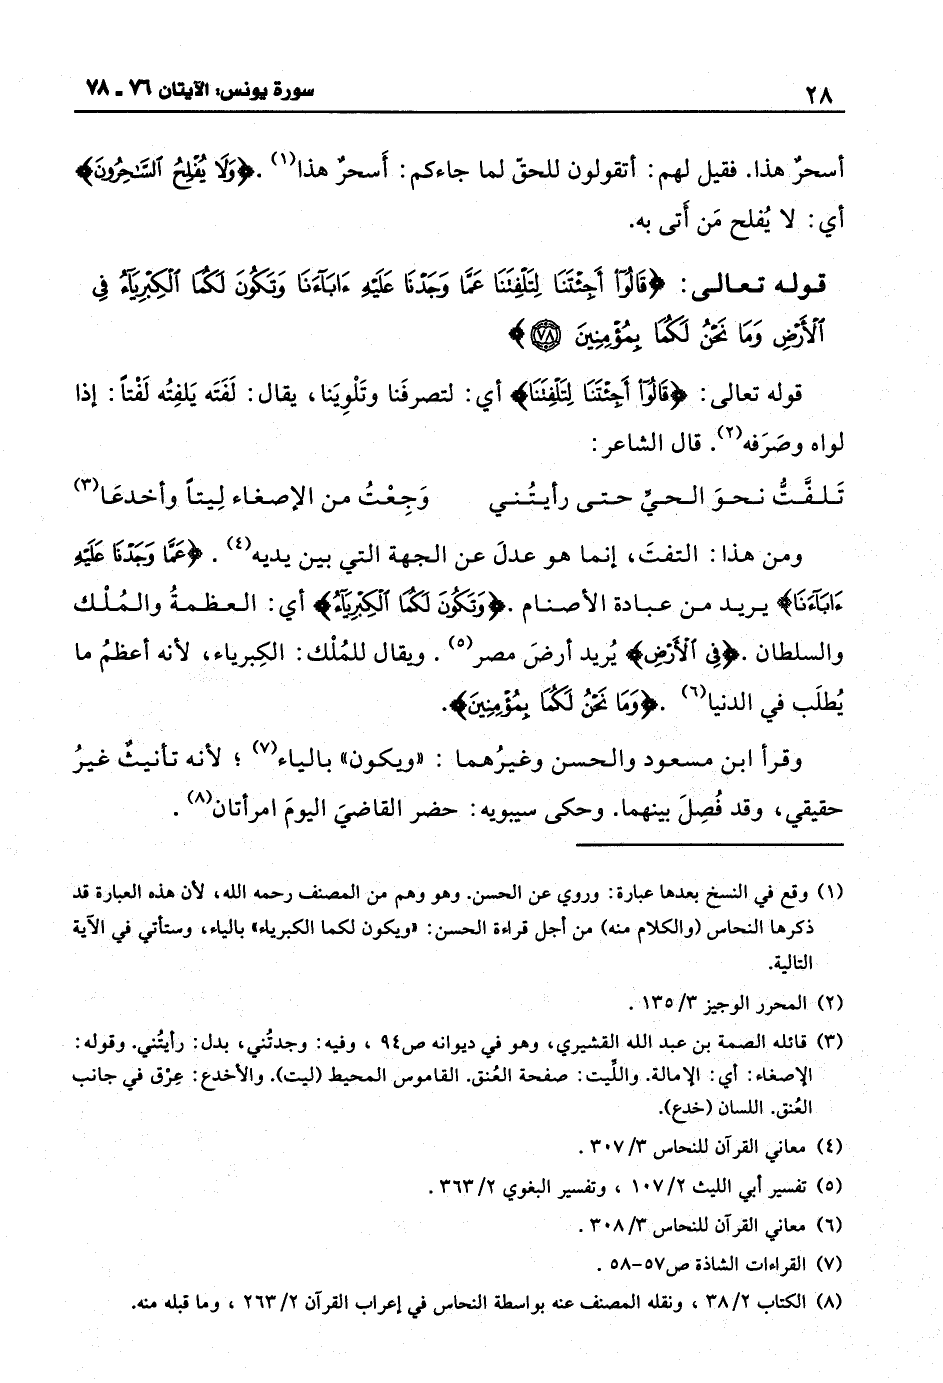 ٢٨ سورة يونس: الآيتان ٧٦ ـ ٧٨
أسحرٌ هذا. فقيل لهم: أتقولون للحقّ لما جاءكم: أَسحرٌ هذا(١). ﴿وَلَا يُفْلِحُ ٱلسَّٰحِرُونَ﴾
أي: لا يُفلح مَن أَتى به.
قوله تعالى: ﴿قَالُوٓا۟ أَجِئْتَنَا لِتَلْفِتَنَا عَمَّا وَجَدْنَا عَلَيْهِ ءَابَآءَنَا وَتَكُونَ لَكُمَا ٱلْكِبْرِيَآءُ فِى
ٱلْأَرْضِ وَمَا نَحْنُ لَكُمَا بِمُؤْمِنِينَ ٧٨﴾
قوله تعالى: ﴿قَالُوٓا۟ أَجِئْتَنَا لِتَلْفِتَنَا﴾ أي: لتصرفَنا وتَلْوِيَنا، يقال: لَفَتَه يَلفِتُه لَفْتاً: إذا
لواه وصَرَفه(٢). قال الشاعر:
تَلفَّتُّ نحوَ الحيِّ حتى رأيتُني وَجِعْتُ من الإصغاء لِيتاً وأخدعَا(٣)
ومن هذا: التفتَ، إنما هو عدلَ عن الجهة التي بين يديه(٤). ﴿عَمَّا وَجَدْنَا عَلَيْهِ
ءَابَآءَنَا﴾ يريد من عبادة الأصنام. ﴿وَتَكُونَ لَكُمَا ٱلْكِبْرِيَآءُ﴾ أي: العظمةُ والمُلْك
والسلطان. ﴿فِى ٱلْأَرْضِ﴾ يُريد أرضَ مصر(٥). ويقال للمُلْك: الكِبرياء، لأنه أعظمُ ما
يُطلَب في الدنيا(٦). ﴿وَمَا نَحْنُ لَكُمَا بِمُؤْمِنِينَ﴾.
وقرأ ابن مسعود والحسن وغيرُهما: «ويكون» بالياء(٧)؛ لأنه تأنيثٌ غيرُ
حقيقي، وقد فُصِلَ بينهما. وحكى سيبويه: حضر القاضيَ اليومَ امرأتان(٨).
(١) وقع في النسخ بعدها عبارة: وروي عن الحسن. وهو وهم من المصنف رحمه الله، لأن هذه العبارة قد
ذكرها النحاس (والكلام منه) من أجل قراءة الحسن: «ويكون لكما الكبرياء» بالياء، وستأتي في الآية
التالية.
(٢) المحرر الوجيز ٣/ ١٣٥.
(٣) قائله الصمة بن عبد الله القشيري، وهو في ديوانه ص٩٤، وفيه: وجدتُني، بدل: رأيتُني. وقوله:
الإصغاء: أي: الإمالة. واللِّيت: صفحة العُنق. القاموس المحيط (ليت). والأخدع: عِرْق في جانب
العُنق. اللسان (خدع).
(٤) معاني القرآن للنحاس ٣/ ٣٠٧.
(٥) تفسير أبي الليث ٢/ ١٠٧، وتفسير البغوي ٢/ ٣٦٣.
(٦) معاني القرآن للنحاس ٣/ ٣٠٨.
(٧) القراءات الشاذة ص٥٧-٥٨.
(٨) الكتاب ٢/ ٣٨، ونقله المصنف عنه بواسطة النحاس في إعراب القرآن ٢/ ٢٦٣، وما قبله منه.